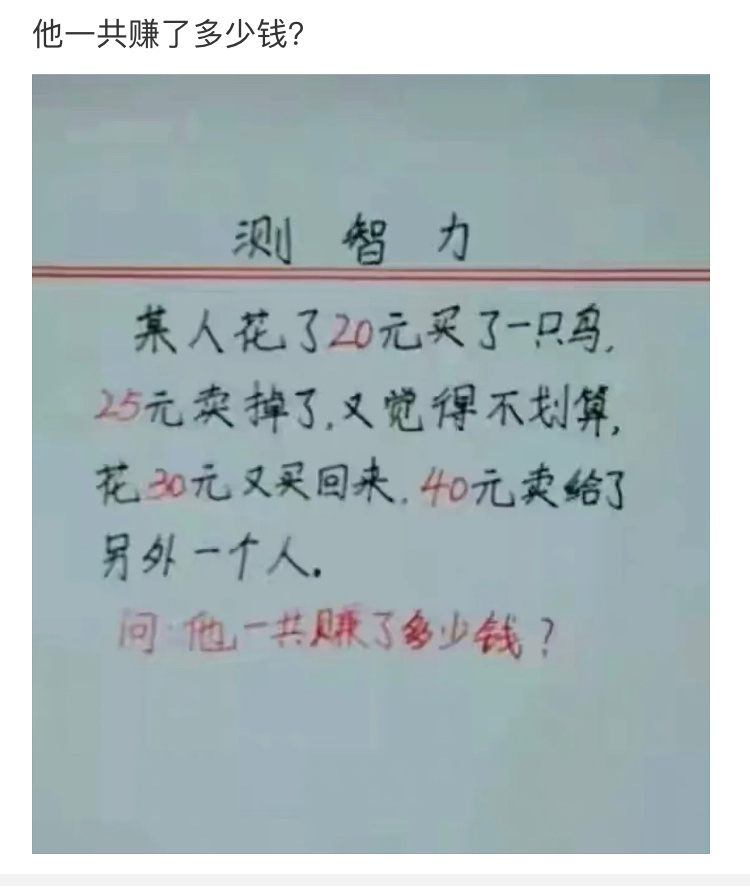 他一共赚了多少钱?
测智力
某人花了20元买了一只鸟,
25元卖掉了,又觉得不划算,
花30元又买回来,40元卖给了
另外一个人。
问:他一共赚了多少钱?